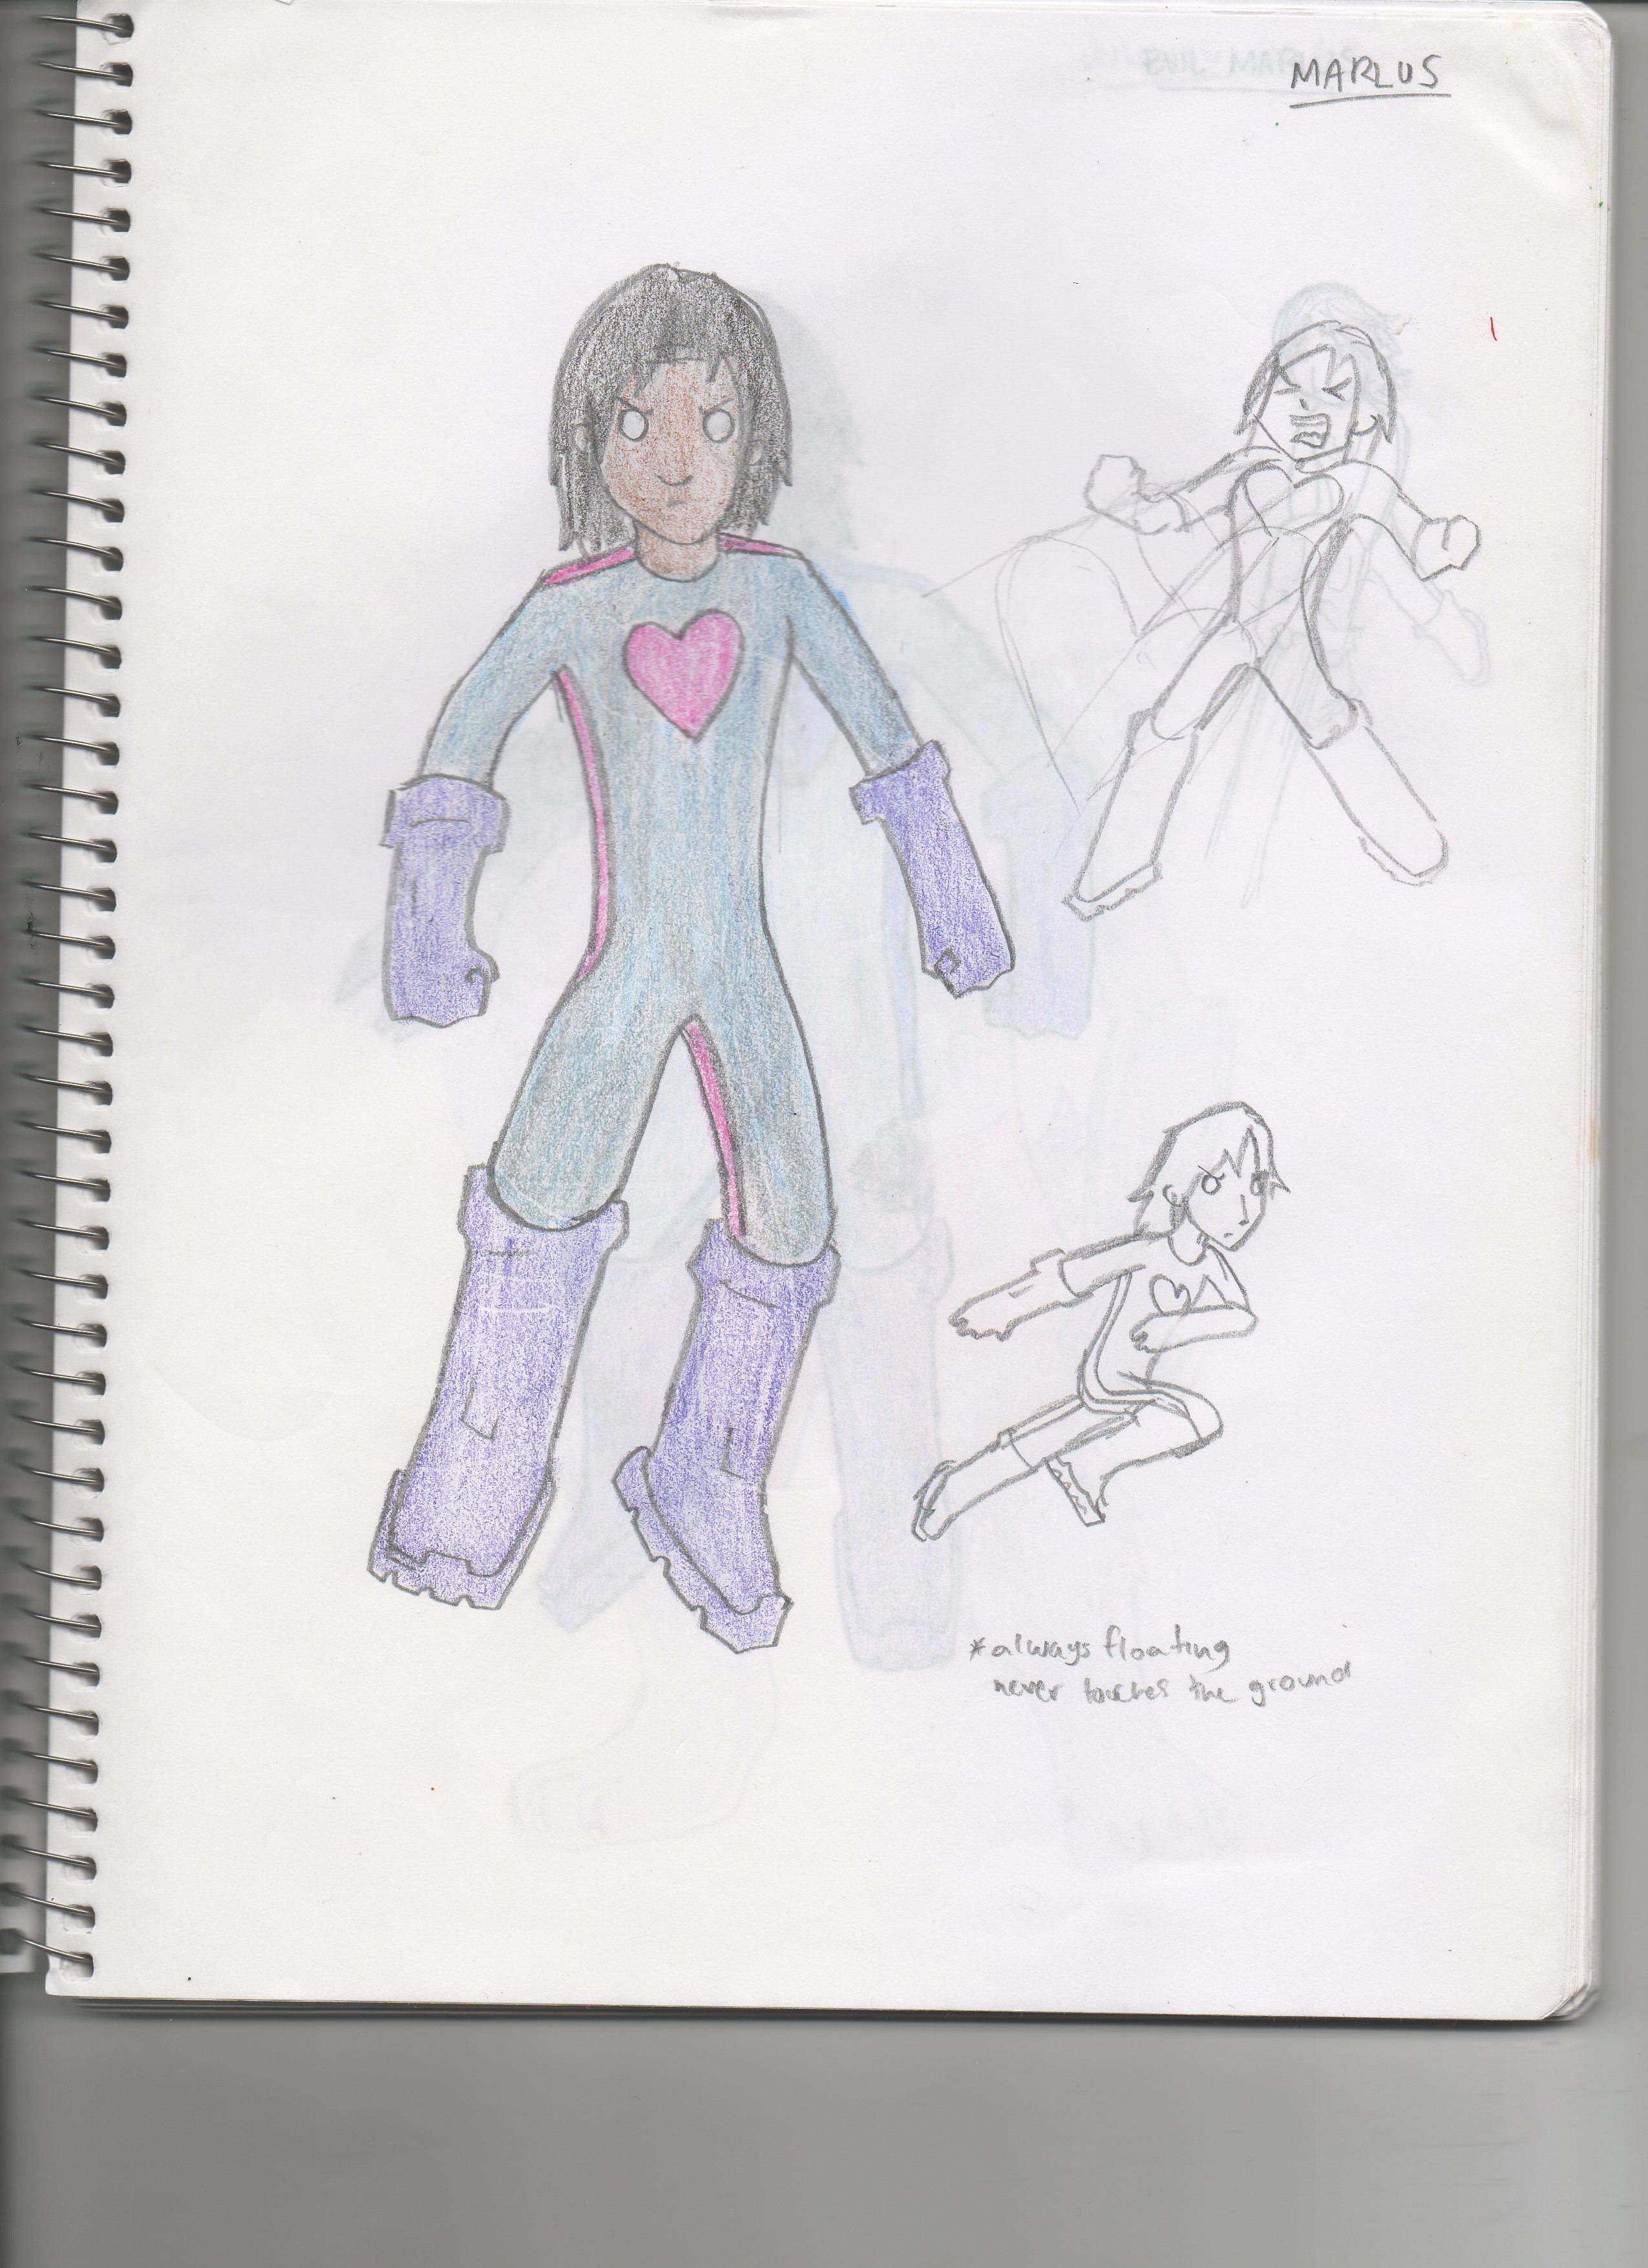 MARLUS
*always floating
never touches the ground